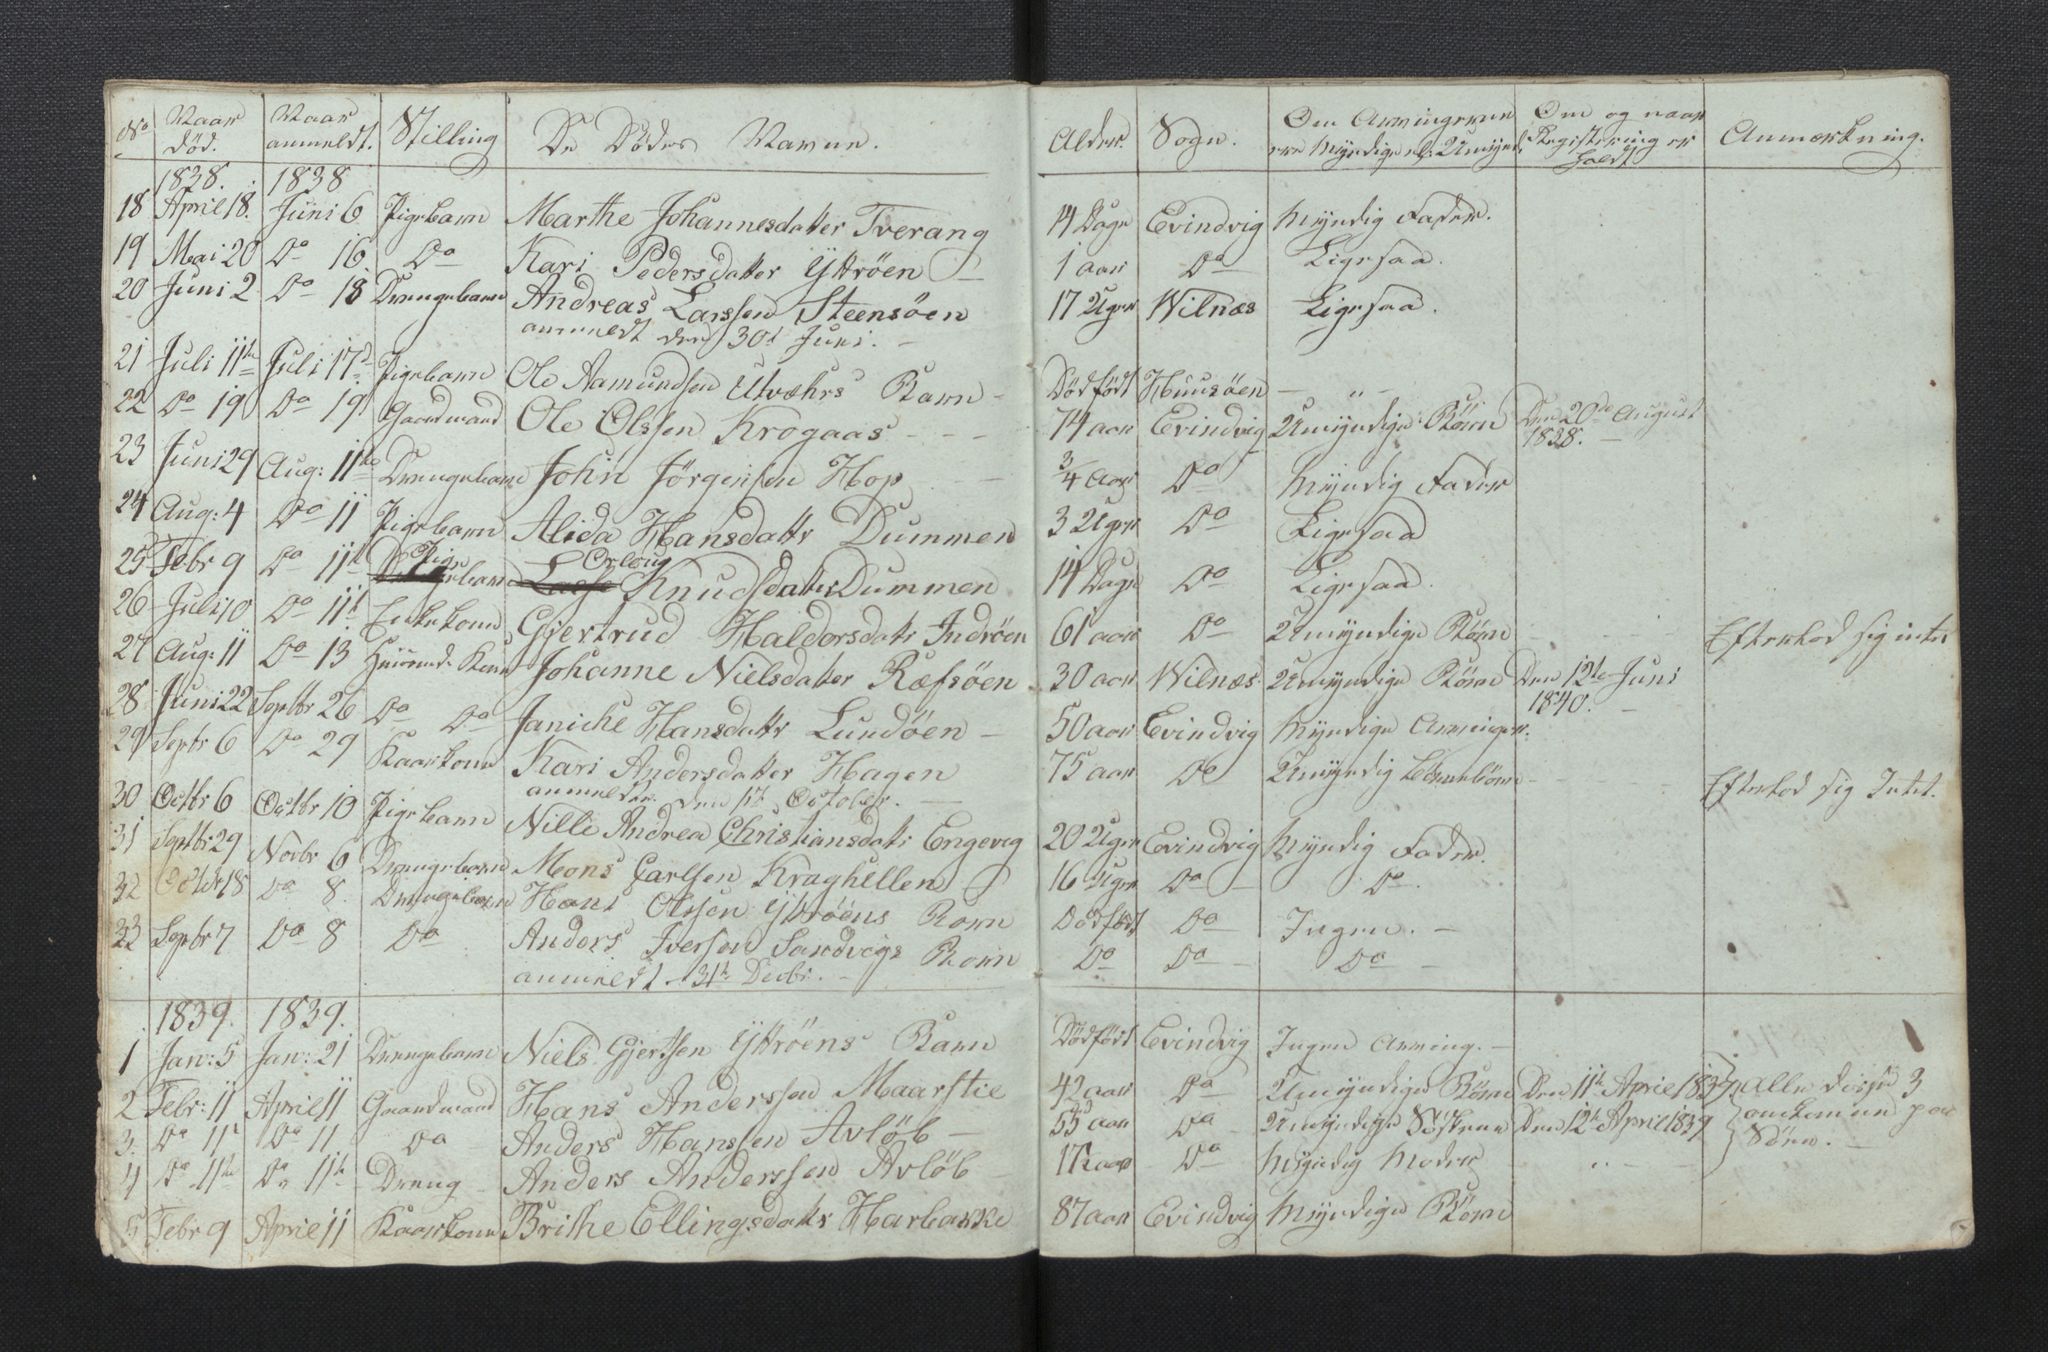 No Naar død. Naar anmeldt. Stilling De Dødes Navne. Alder. Sogn. Om Arvingerne ere Myndige el: Umynd: Om og naar Registering er holdt Anmærkning.
1838. 1838
18 April 18. Juni 6 Pigebarn Marthe Johannesdatter Tverang 14 Dage Evindvig Myndig Fader.
19 Mai 20 Do 16 Do Kari Pedersdatter Yttrøen 1 aar Do Ligesaa.
20 Juni 2 Do 18 Drengebarn Andreas Larssen Steensøen 17 Uger Wilnæs Ligesaa.
anmeldt den 30t Juni.
21 Juli 11te Juli 17d Pigebarn Ole Aamundsen Utvæhrs Barn Dødfødt Huusøen - " -
22 Do 19 Do 19 Gaardmand Ole Olssen Krogaas 74 aar Evindvig Umyndige Børn Den 20de August 1838.
23 Juni 29 Aug: 11te Drengebarn John Jørgensen Hop 3/4 Aar Do Myndig Fader
24 Aug: 4 Do 11 Pigebarn Alida Hansdattr Dummen 3 Uger Do Ligesaa
25 Febr 9 Do 11te Pige barn Knudsdatter Dummen 14 Dage Do Ligesaa.
26 Juli 10 Do 11t Enkekone Gjertrud Haldorsdatr Indrøen 61 aar Do Umyndige Børn Efterlod sig intet
27 Aug: 11 Do 13 Huusmds Kone Johanne Nielsdatter Ræfsøen 30 aar Wilnæs Umyndige Børn Den 12te Juni 1840.
28 Juni 22 Septbr 26 Do Do Janiche Hansdattr Lundøen 50 aar Evindvig Myndige Arvinger.
29 Septr 6 Do 29 Kaarkone Kari Andersdatter Hagen 75 aar Do Umyndig Børnebørn Efterlod sig Intet.
anmeldt. den 1ste October.
30 Octbr 6 Octbr 10 Pigebarn Nille Andrea Christiansdatr Engevig 20 Uger Evindvig Myndig Fader.
31 Septbr 29 Novbr 6 Drengebarn Mons Carlsen Kraghellen 16 Uger Do Do.
32 Octbr 18 Do 8. Drengebarn Hans Olssen Yttrøens Barn Dødfødt Do Ingen.
33 Septbr 7 Do 8 Do Anders Iversen Sandvigs Barn Do Do Do
anmeldt 31te Decbr.
1839. 1839.
1 Jan: 5 Jan: 21 Drengebarn Niels Gjertsen Yttrøens Barn Dødfødt Evindvig Ingen Arving.
2 Febr: 11 April 11 Gaardmand Hans Anderssen Maarstie 42 aar Do Umyndige Børn Den 11te April 1839 alle disse 3
3. Do 11t Do 11 Do Anders Hanssen Avløb 55 aar Do Umyndige Søskene Den 12te April 1839 omkomne paa
4 Do 11te Do 11te Dreng Anders Anderssen Avløb 17 aar Do Myndig Moder Søen.
5 Febr 9 April 11 Kaarkone Brithe Ellingsdatr Harbakke 87 aar Evindvig Myndige Børn